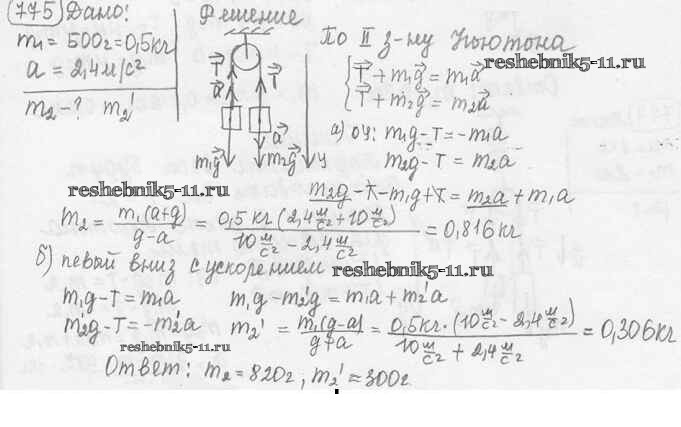 775 Дано: Решение
m₁ = 500г = 0,5кг
a = 2,4м/с²
m₂ - ? m₂'
T⃗ T⃗
a⃗
a⃗
m₁g⃗ m₂g⃗ y
По II з-ну Ньютона
reshebnik5-11.ru
{ T⃗ + m₁g⃗ = m₁a⃗
T⃗ + m₂g⃗ = m₂a⃗
а) оу: m₁g - T = -m₁a
m₂g - T = m₂a
reshebnik5-11.ru
m₂g - T - m₁g + T = m₂a + m₁a
m₂ = m₁(a+g)/(g-a) = 0,5 кг (2,4 м/с² + 10 м/с²)/(10 м/с² - 2,4 м/с²) = 0,816 кг
б) певый вниз с ускорением reshebnik5-11.ru
m₁g - T = m₁a m₁g - m₂g = m₁a + m₂'a
m₂g - T = -m₂'a m₂' = m₁(g-a)/(g+a) = 0,5кг·(10 м/с² - 2,4 м/с²)/(10 м/с² + 2,4 м/с²) = 0,306кг
reshebnik5-11.ru
Ответ: m₂ = 820г, m₂' ≈ 300г